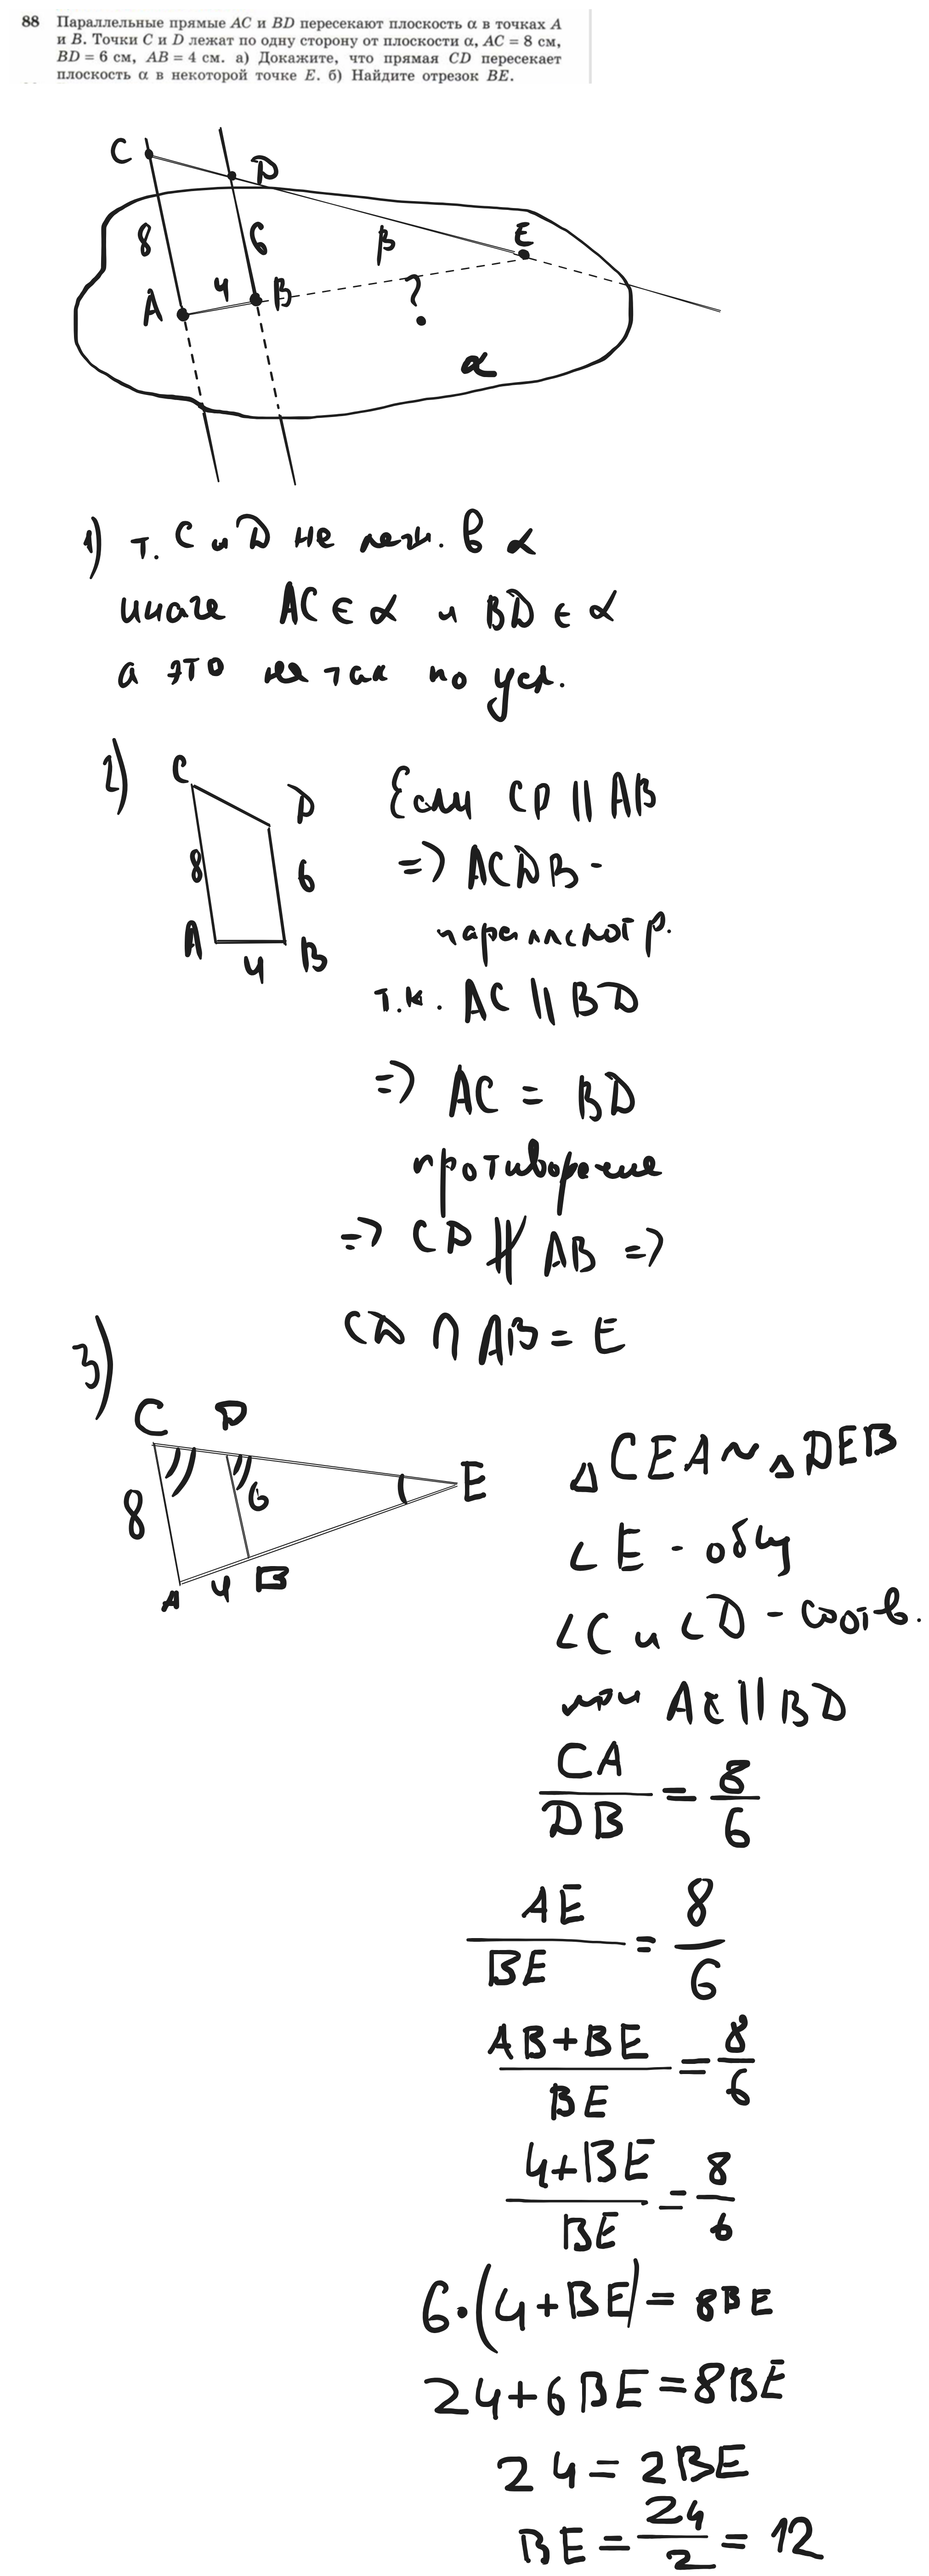 88 Параллельные прямые AC и BD пересекают плоскость α в точках A
и B. Точки C и D лежат по одну сторону от плоскости α, AC = 8 см,
BD = 6 см, AB = 4 см. а) Докажите, что прямая CD пересекает
плоскость α в некоторой точке E. б) Найдите отрезок BE.
C
D
8
6
β
E
4
A
B
?
α
1) т. C и D не леж. в α
иначе AC ∈ α и BD ∈ α
а это не так по усл.
2)
C
D
8
6
A
B
4
Если CD || AB
=> ACDB -
параллелогр.
т.к. AC || BD
=> AC = BD
противоречие
=> CD ∦ AB =>
CD ∩ AB = E
3)
C D
8
6
E
A 4 B
△CEA ~ △DEB
∠E - общ
∠C и ∠D - соотв.
при AC || BD
CA/DB = 8/6
AE/BE = 8/6
AB+BE/BE = 8/6
4+BE/BE = 8/6
6·(4+BE) = 8BE
24+6BE=8BE
24 = 2BE
BE = 24/2 = 12